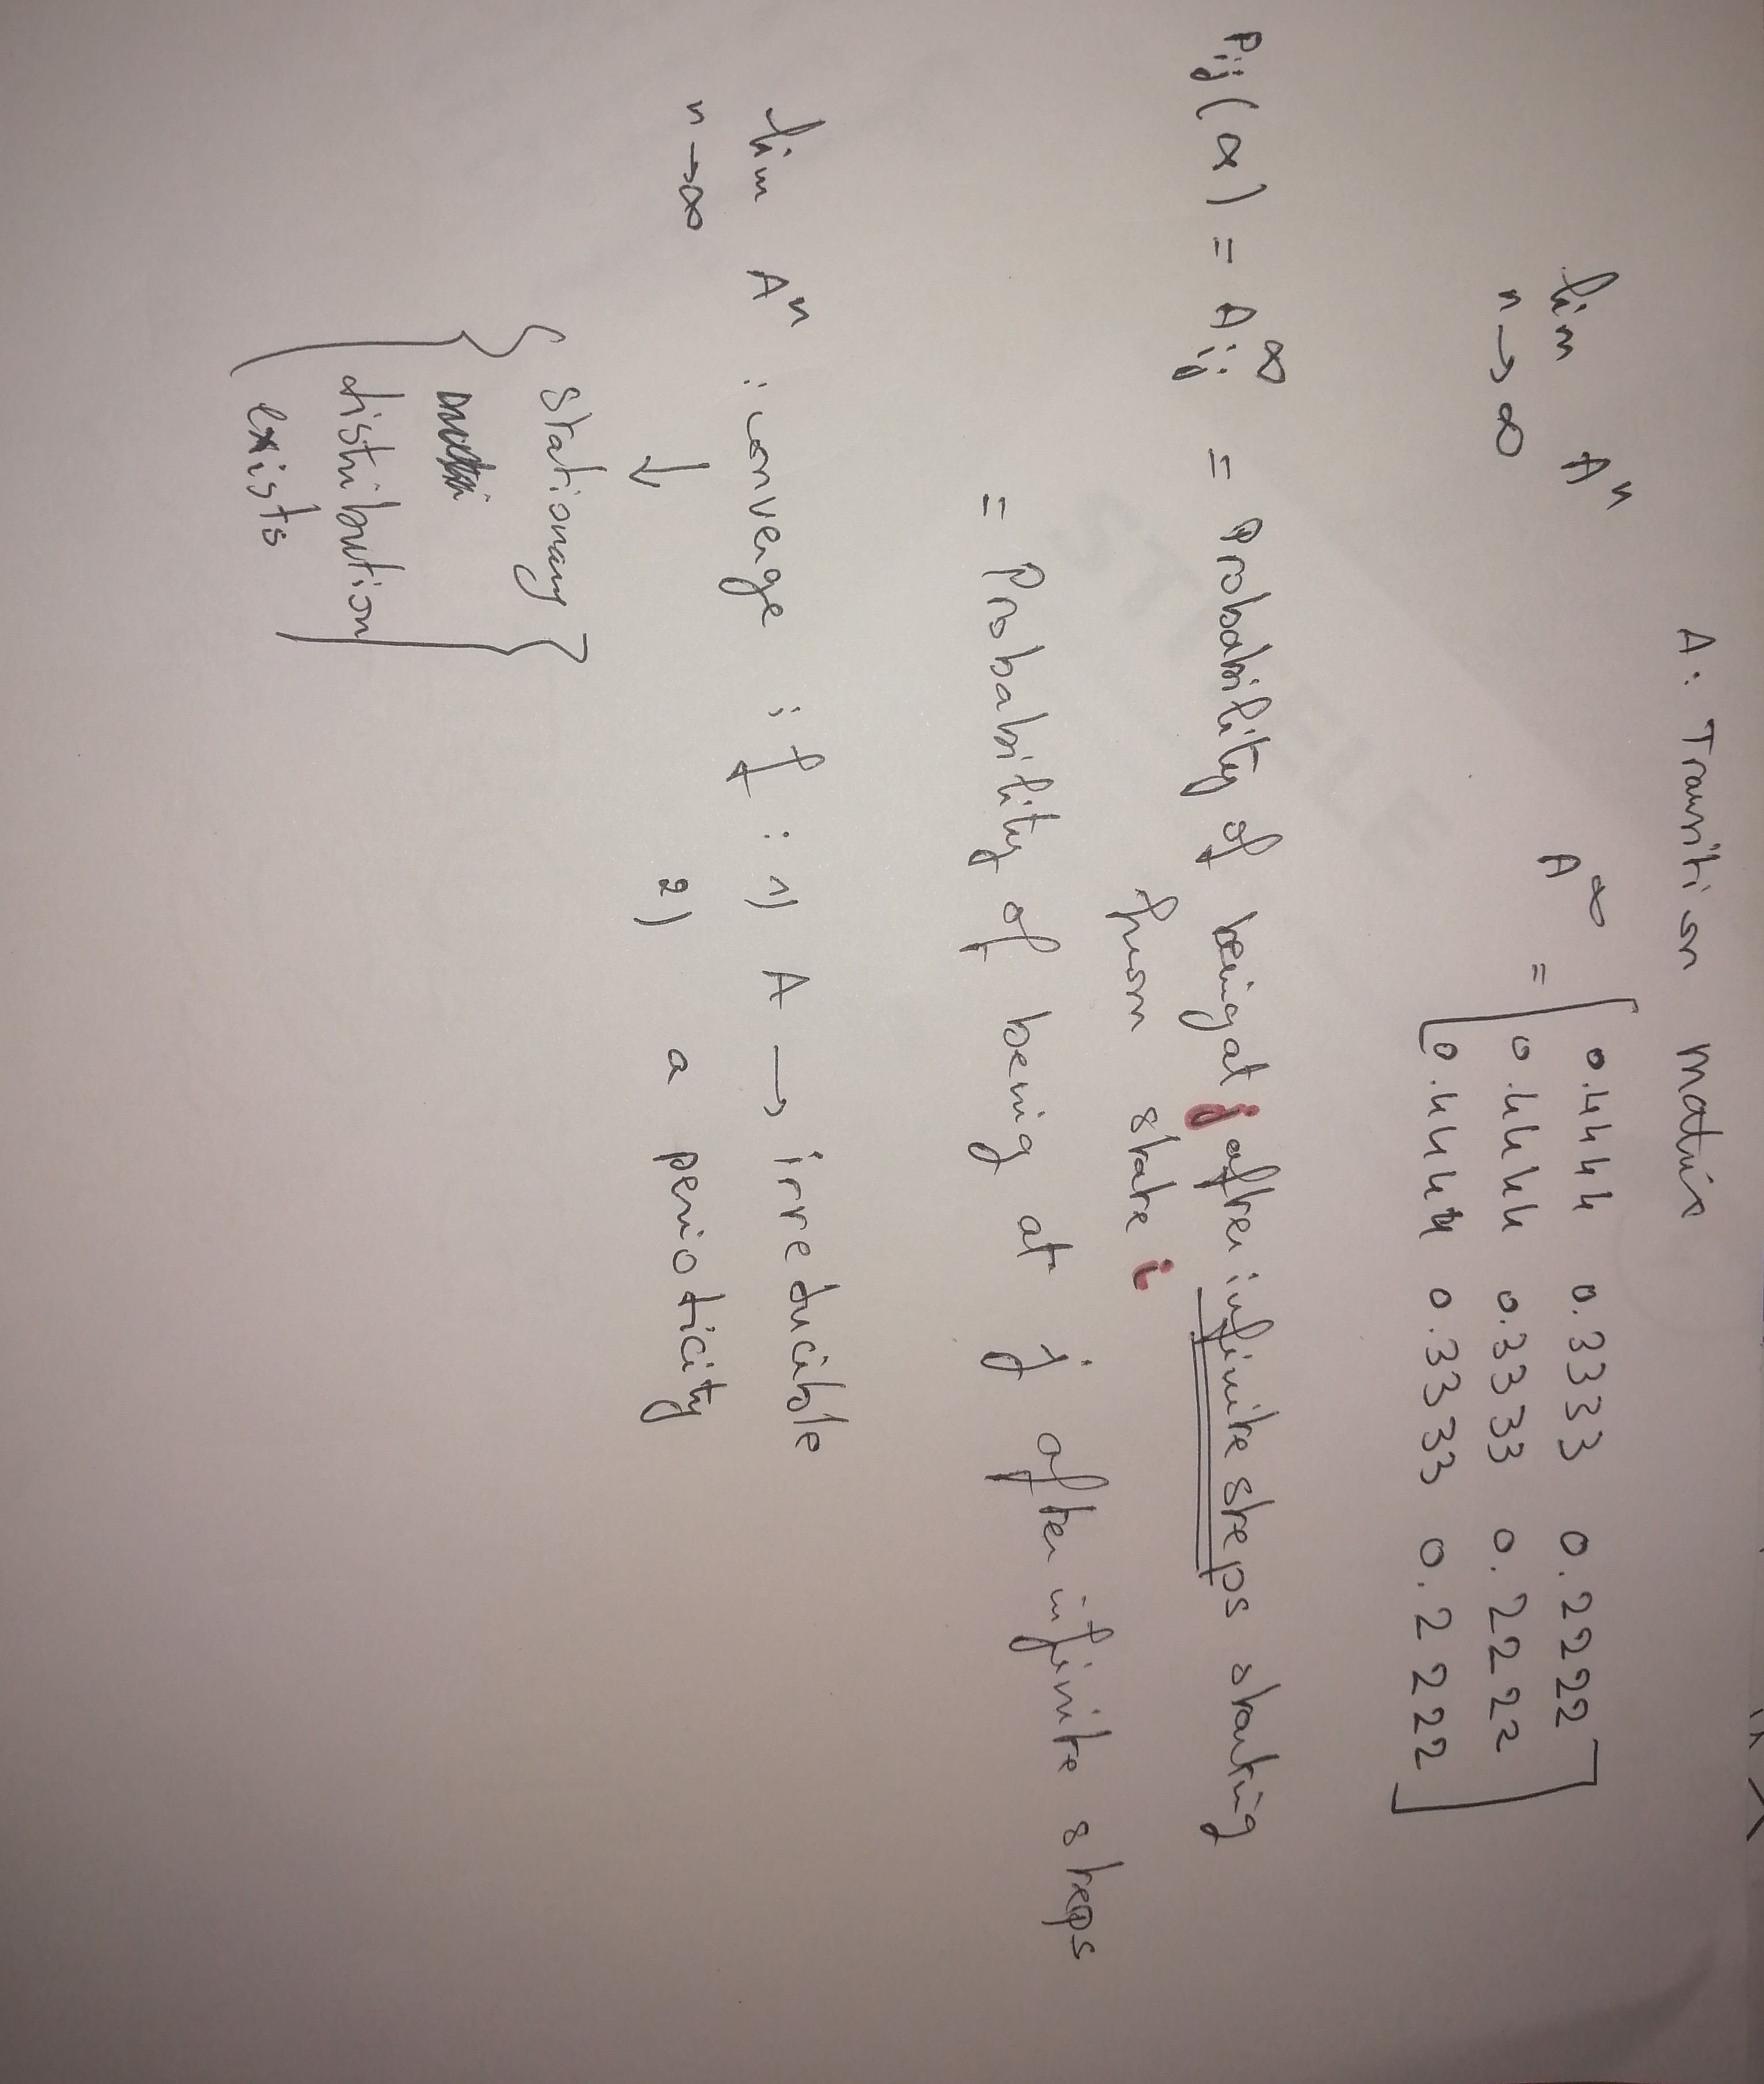 A: Transition matrix
lim A^n
n→∞
A^∞ = [0.4444 0.3333 0.2222
0.4444 0.3333 0.2222
0.4444 0.3333 0.2222]
Pij(∝) = A^∞ij = Probability of being at j after infinite steps starting
from state i
= Probability of being at j after infinite steps
lim A^n : converge if : 1) A → irreducible
n→∞ 2) a periodicity
↓
{ stationary }
distribution
exists
STEELE